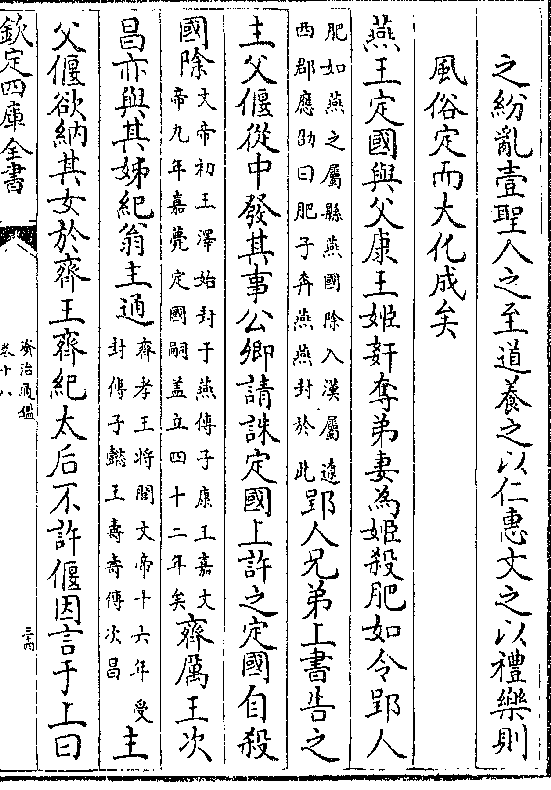 之紛亂壹聖人之至道養之以仁惠文之以禮樂則
風俗定而大化成矣
燕王定國與父康王姬奸奪弟妻為姬殺肥如令郢人
肥如燕之屬縣燕國除入漢屬遼
西郡應劭曰肥子奔燕燕封於此
郢人兄弟上書告之
主父偃從中發其事公卿請誅定國上許之定國自殺
國除
文帝初王澤始封于燕傳子康王嘉文
帝九年嘉薨定國嗣盖立四十二年矣
齊厲王次
昌亦與其姊紀翁主通
齊孝王將閭文帝十六年受
封傳子懿王壽壽傳次昌
主
父偃欲納其女於齊王齊紀太后不許偃因言于上曰
欽定四庫全書
資治通鑑
卷十八
三十四